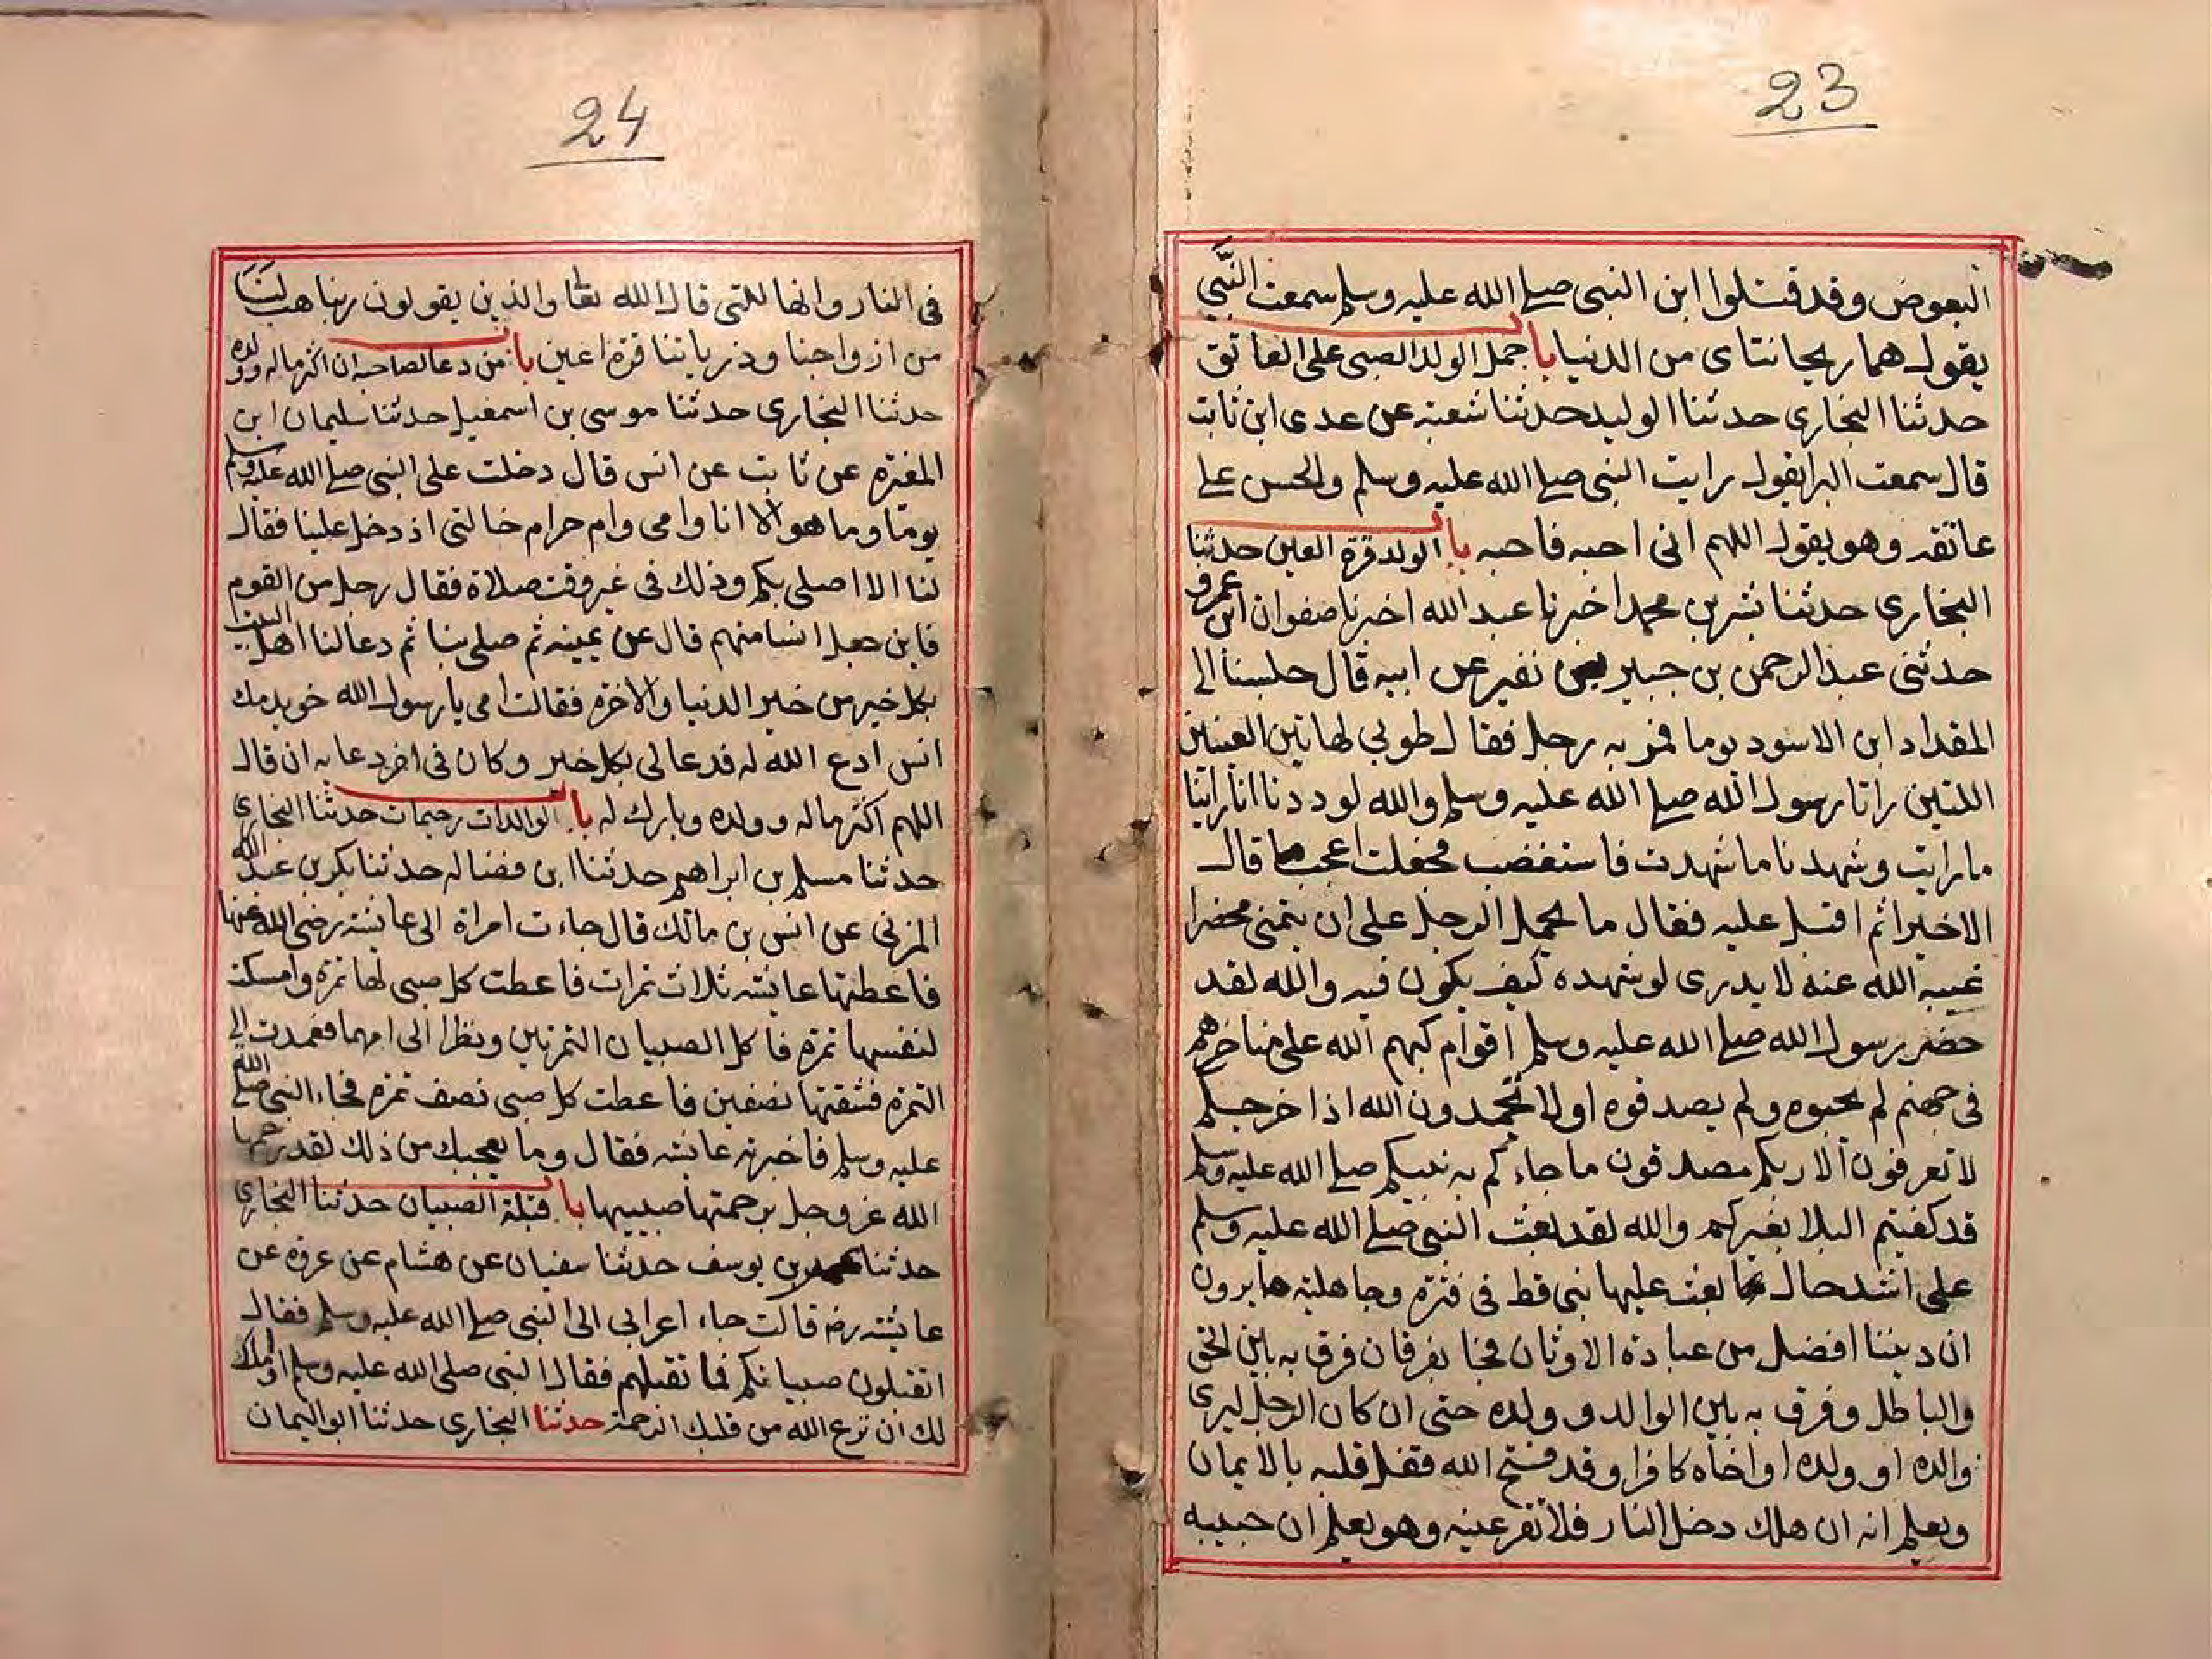 23
البعوض وقد قتلوا ابن النبى صلى الله عليه وسلم سمعت النَّبي
يقول هما ريحانتاى من الدنيا باب حمل الولد الصبى على العاتق
حدثنا البخارى حدثنا الوليد حدثنا شعبة عن عدى ابن ثابت
قال سمعت البرا يقول رايت النبى صلى الله عليه وسلم والحسن على
عاتقه وهو يقول اللهم انى احبه فاحبه باب الولد قرة العين حدثنا
البخارى حدثنا بشر بن محمد اخبرنا عبد الله اخبرنا صفوان ابن عمرو
حدثنى عبد الرحمن بن جبير بن نفير عن ابيه قال جلسنا الى
المقداد ابن الاسود يوما فمر به رجل فقال طوبى لهاتين العينين
اللتين راتا رسول الله صلى الله عليه وسلم والله لوددنا انا راينا
ما رايت وشهدنا ما شهدت فاستغضب فجعلت اعجب ما قال
الا خيرا ثم اقبل عليه فقال ما يحمل الرجل على ان يتمنى محضرا
غيبه الله عنه لا يدرى لو شهده كيف يكون فيه والله لقد
حضر رسول الله صلى الله عليه وسلم اقوام كبهم الله على مناخرهم
فى جهنم لم يحبوه ولم يصدقوه اولا تحمدون الله اذا خرجكم
لا تعرفون الا ربكم مصدقون ما جاءكم به نبيكم صلى الله عليه وسلم
قد كفيتم البلا بغيركم والله لقد بعث النبى صلى الله عليه وسلم
على اشد حال بعث عليها نبى قط فى فترة وجاهلية ما يرون
ان ديننا افضل من عبادة الاوثان فجا بفرقان فرق به بين الحق
والباطل وفرق به بين الوالد وولده حتى ان كان الرجل ليرى
والده او ولده او اخاه كافرا وقد فتح الله قفل قلبه بالايمان
ويعلم انه ان هلك دخل النار فلا تقر عينه وهو يعلم ان حبيبه
24
فى النار وانها للتى قال الله تعا والذين يقولون ربنا هب لَنَا
من ازواجنا وذرياتنا قرة اعين باب من دعا لصاحبه ان اكثر ماله وولده
حدثنا البخارى حدثنا موسى بن اسمعيل حدثنا سليمان ابن
المغيره عن ثابت عن انس قال دخلت على النبى صلى الله عليه وسلم
يوما وما هو الا انا وامى وام حرام خالتى اذ دخل علينا فقال
لنا الا اصلى بكم وذلك فى غير وقت صلاة فقال رجل من القوم
فاين جعل انسا منهم قال عن يمينه ثم صلى بنا ثم دعا لنا اهل البيت
بكل خير من خير الدنيا والاخره فقالت امى يا رسول الله خويدمك
انس ادع الله له فدعا لى بكل خير وكان فى اخر دعايه ان قال
اللهم اكثر ماله وولده وبارك له باب الوالدات رحيمات حدثنا البخارى
حدثنا مسلم بن ابراهيم حدثنا ابن فضاله حدثنا بكر بن عبد الله
المزنى عن انس بن مالك قال جاءت امراة الى عايشة رضى الله عنها
فاعطتها عايشه ثلاث تمرات فاعطت كل صبى لها تمرة وامسكت
لنفسها تمرة فاكل الصبيان التمرتين ونظرا الى امهما فعمدت الى
التمرة فشقتها نصفين فاعطت كل صبى نصف تمرة فجاء النبى صلى الله
عليه وسلم فاخبرته عايشه فقال وما يعجبك من ذلك لقد رحمها
الله عز وجل برحمتها صبييها باب قبلة الصبيان حدثنا البخارى
حدثنا محمد بن يوسف حدثنا سفيان عن هشام عن عروه عن
عايشه رضه قالت جاء اعرابى الى النبى صلى الله عليه وسلم فقال
اتقبلون صبيانكم فما نقبلهم فقال النبى صلى الله عليه وسلم اواملك
لك ان نزع الله من قلبك الرحمة حدثنا البخارى حدثنا ابو اليمان